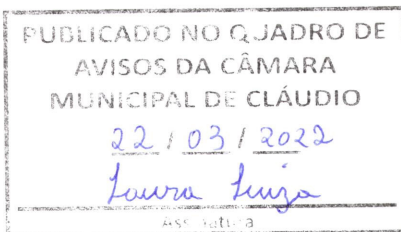 PUBLICADO NO QUADRO DE
AVISOS DA CÂMARA
MUNICIPAL DE CLÁUDIO
22 / 03 / 2022
Laura Luiza
Assinatura